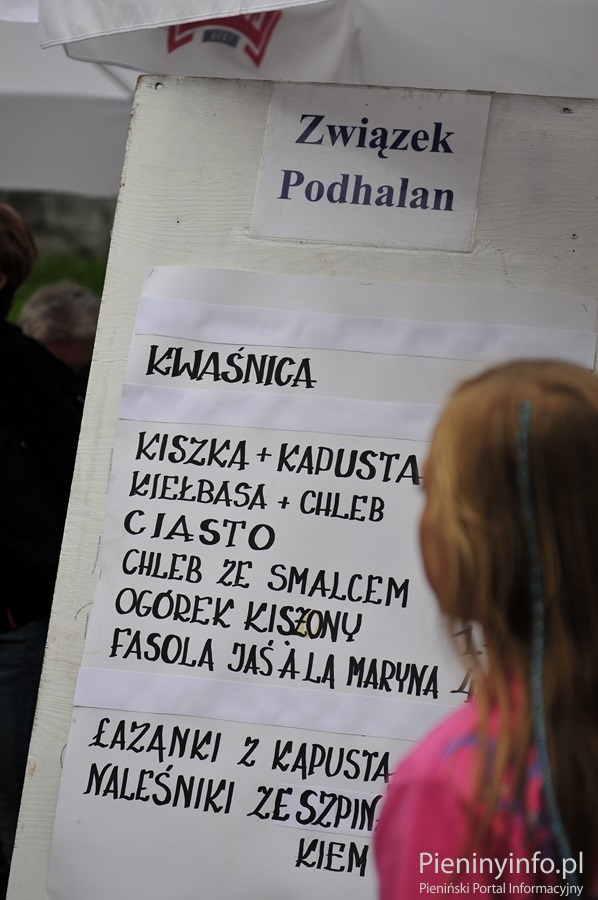 Związek
Podhalan
KWAŚNICA
KISZKA + KAPUSTA
KIEŁBASA + CHLEB
CIASTO
CHLEB ZE SMALCEM
OGÓREK KISZONY
FASOLA JAŚ À LA MARYNA 4
ŁAZANKI Z KAPUSTA
NALEŚNIKI ZE SZPIN
KIEM
Pieninyinfo.pl
Pieniński Portal Informacyjny